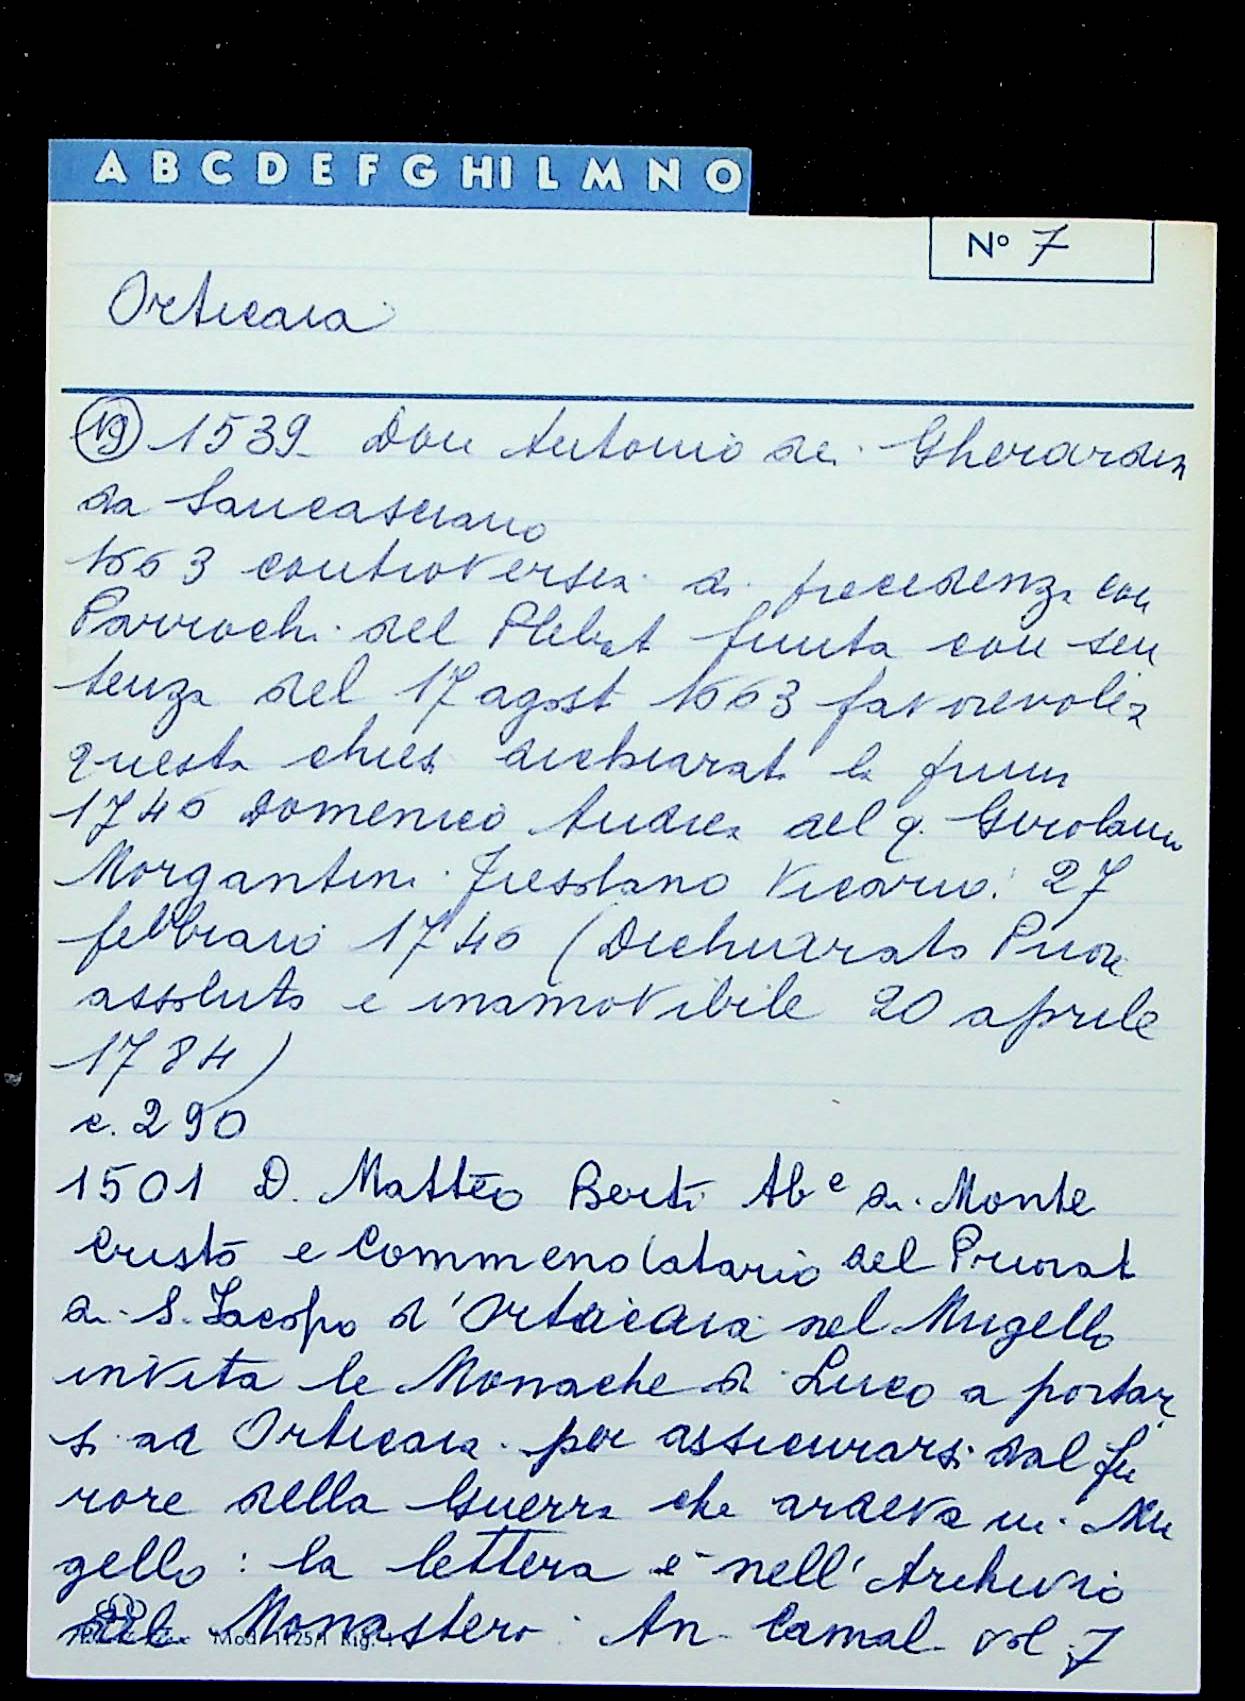 A B C D E F G H I L M N O
N° 7
Orticaia
19 1539 Don Antonio dei Gherardin
da Sancasciano
1663 controversia di precedenza con
Parrochi del Plebat finita con sen
tenza del 17 agost 1663 favorevole a
questa chies dichiarat la prima
1746 Domenico Andrea del q. Girolamo
Morgantini Fiesolano Vicario: 27
febbraio 1746 (Dichiarato Priore
assoluto e inamovibile 20 aprile
1784)
c. 290
1501 D. Matteo Berti Ab e di Monte
Cristo e Commendatario del Priorat
di S. Jacopo d'Orticaia nel Mugello
invita le Monache di Luco a portar
si ad Orticaia per assicurarsi dal fu
rore della Guerra che ardeva in Mu
gello: la lettera è nell'Archivio
del Monastero An Camal vol 7
Mod. 1125/1 Rig.